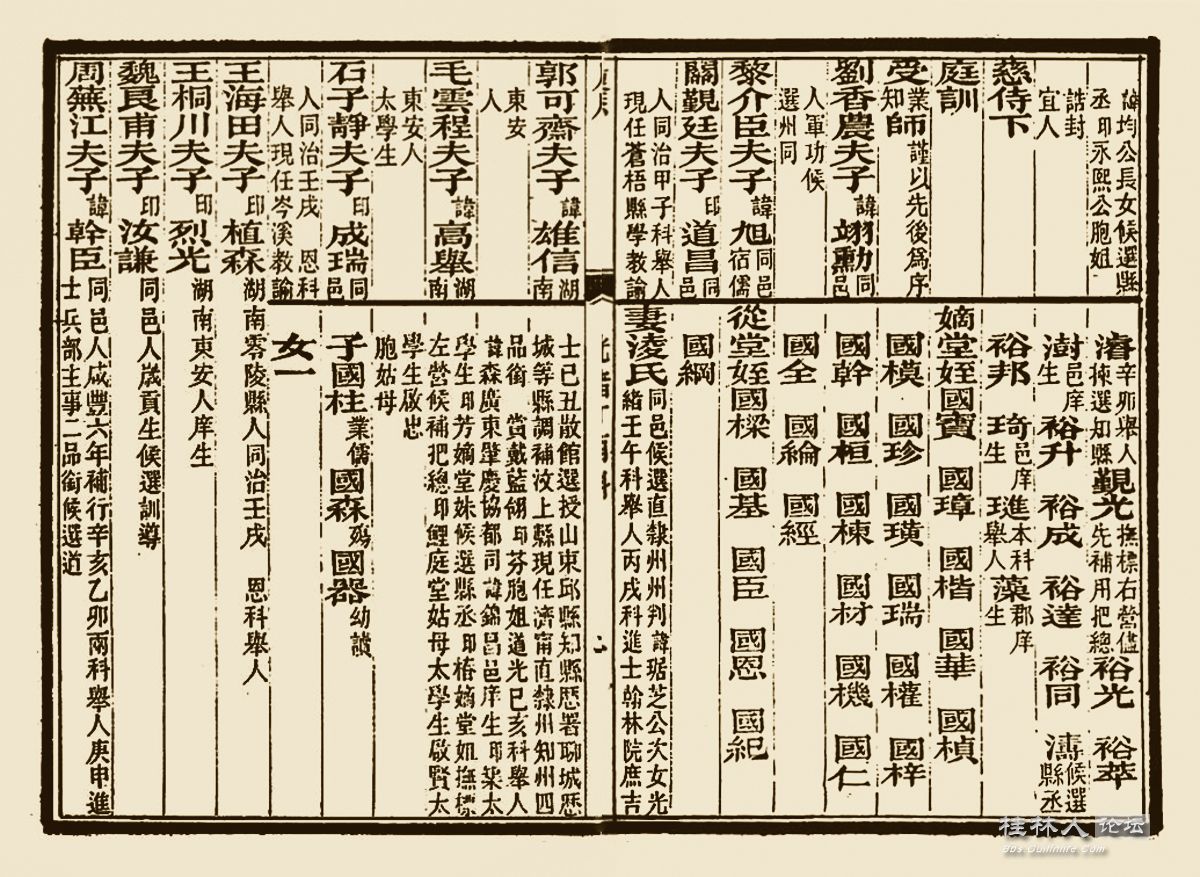 諱均公長女候選縣
丞印永熙公胞姐
誥封
宜人
慈侍下
庭訓
受業師謹以先後爲序
知
劉香農夫子諱翊勳同邑
人軍功候
選州同
黎介臣夫子諱旭同邑宿儒
關覲廷夫子印道昌同邑
人同治甲子科舉人
現任蒼梧縣學教諭
濬辛卯舉人揀選知縣覲光撫標右營儘先補用把總裕光 裕萃
澍邑庠生裕升 裕成 裕達 裕同 濤候選縣丞
裕邦 琦邑庠生璡本科舉人藻郡庠生
嫡堂姪國寶 國璋 國楷 國華 國楨
國模 國珍 國璜 國瑞 國權 國梓
國幹 國桓 國棟 國材 國機 國仁
國全 國綸 國經
從堂姪國樑 國基 國臣 國恩 國紀
國綱
妻淩氏同邑候選直隸州州判諱琚芝公次女光
緒壬午科舉人丙戌科進士翰林院庶吉
郭可齋夫子諱雄信湖南
東安
人
毛雲程夫子諱高舉湖南
東安人
太學生
石子靜夫子印成瑞同邑
人同治壬戌 恩科
舉人現任岑溪教諭
士己丑散館選授山東邱縣知縣歷署聊城歷
城等縣調補汶上縣現任濟甯直隸州知州四
品銜 賞戴藍翎印芬胞姐道光己亥科舉人
諱森廣東肇慶協都司諱錦昌邑庠生印榮太
學生印芳嫡堂妹候選縣丞印椿嫡堂姐撫標
左營候補把總印鯉庭堂姑母太學生啟賢太
學生啟忠
胞姑母
子國柱業儒國森殤國器幼讀
女一
王海田夫子印植森湖南零陵縣人同治壬戌 恩科舉人
王桐川夫子印烈光湖南東安人庠生
魏艮甫夫子印汝謙同邑人歲貢生候選訓導
周蕪江夫子諱幹臣同邑人咸豐六年補行辛亥乙卯兩科舉人庚申進
士兵部主事二品銜候選道
桂林人论坛
Bbs.Guilinlife.Com